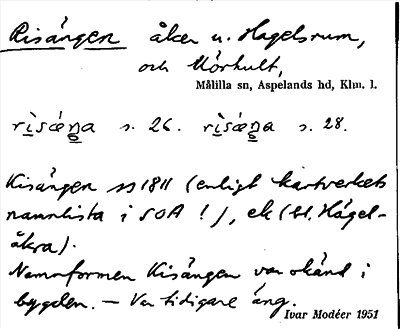 Risängen åker u. Hagelsrum,
och Mörhult,
Målilla sn, Aspelands hd, Klm. l.
rìsæŋa s. 26. rìsæŋa s. 28.
Kisängen 1811 (enligt kartverkets
namnlista i SOA!), ek (bl. Hagel-
åkra).
Namnformen Kisängen var okänd i
bygden. — Var tidigare äng.
Ivar Modéer 1951